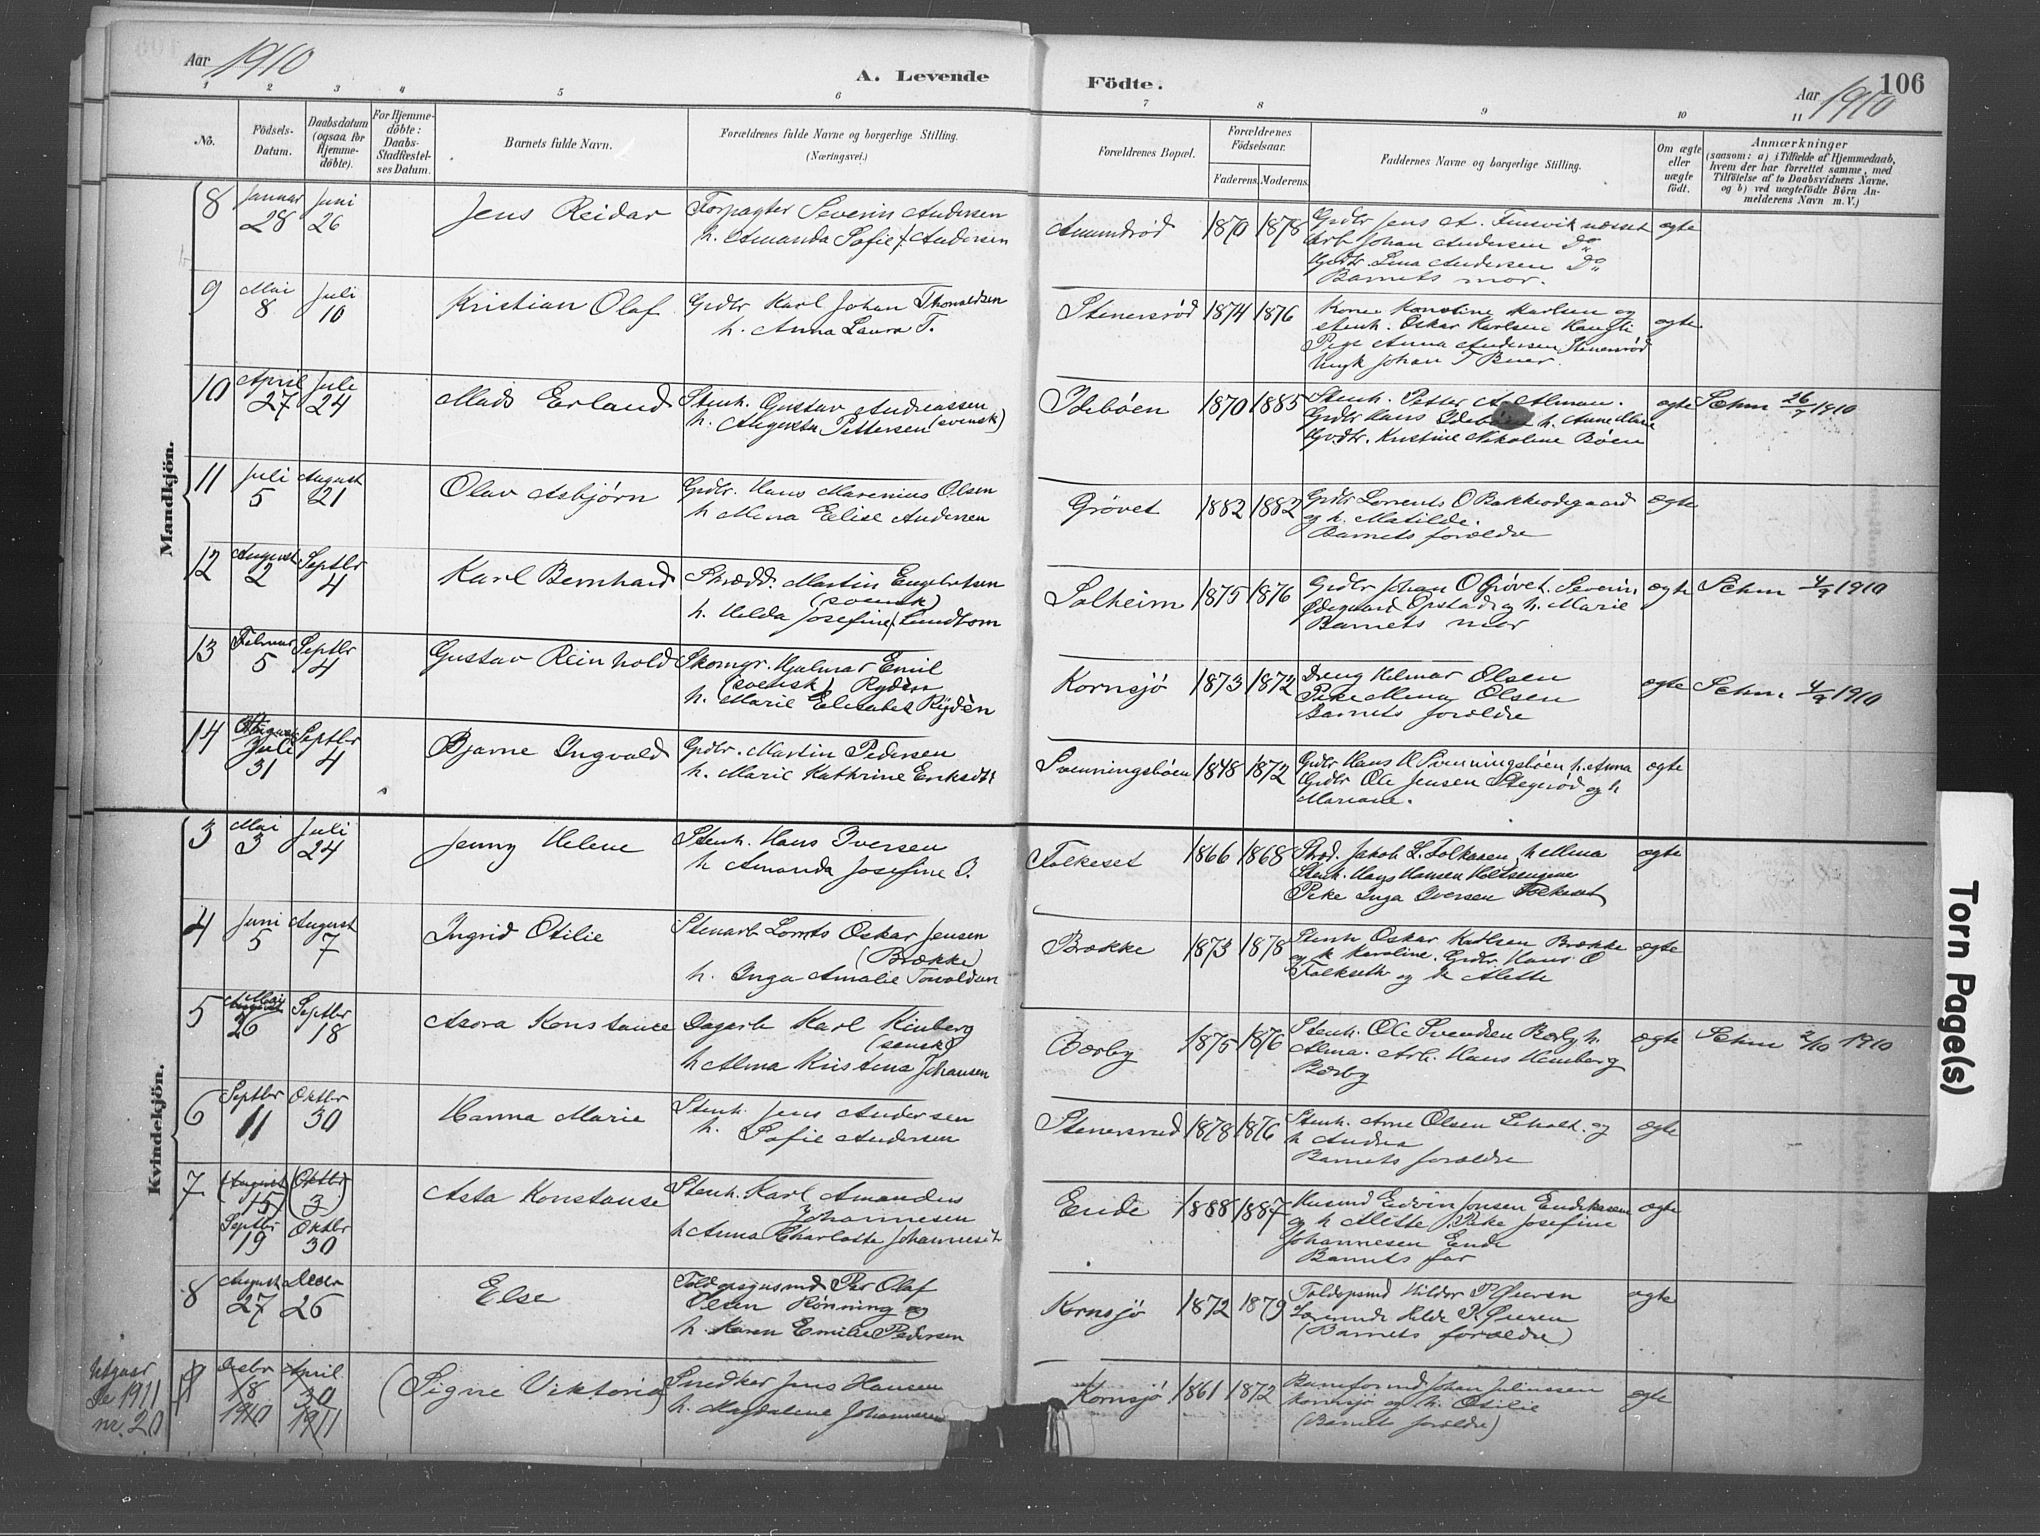 Aar 1910
A. Levende Födte.
Aar 1910
106
1 2 3 4 5 6 7 8 9 10 11
No.
Födsels-Datum.
Daabsdatum (ogsaa for Hjemme-döbte).
For Hjemme-döbte: Daabs-Stadfæstel-ses Datum.
Barnets fulde Navn.
Forældrenes fulde Navne og borgerlige Stilling.
(Næringsvei.)
Forældrenes Bopæl.
Forældrenes Födselsaar.
Faderens. Moderens.
Faddernes Navne og borgerlige Stilling.
Om ægte eller uægte födt.
Anmærkninger
(saasom: a) i Tilfælde af Hjemmedaab,
hvem der har forrettet samme, med
Tilföielse af to Daabsvidners Navne,
og b) ved uægtefödte Börn An-
melderens Navn m. V.)
Mandkjön.
8 Januar 28 Juni 26 Jens Reidar
Forpagter Severin Andersen
h. Amanda Sofie Andersen
Amundrød 1870 1878
Grdbr Jens A.
Arb Johan Andersen Do
Grdbr. Lina Andersen Do
Barnets mor.
ægte
9 Mai 8 Juli 10 Kristian Olaf
Grdbr Karl Johan Thorvaldsen
h. Anna Laura T.
Stenersrød 1874 1876
Kone Konstine Karlsen og
stenh. Oskar Karlsen
Pige Anna Andersen Stenersrød
Ungk Johan T Buer.
ægte
10 April 27 Juli 24 Mads Erland
Stenh. Gustav Andreassen
h. Augusta Pettersen (svensk)
Idebøen 1870 1885
Stenh. Petter A. Alman.
Grdbr Hans Idebøen h. Anne Marie
Grdbr. Kristine Nikoline Bøen
ægte Schm 26/7 1910
11 Juli 5 August 21 Olav Asbjørn
Grdbr. Hans Marenius Olsen
h Mina Elise Andersen
Grøvet 1882 1882
Grdbr Lorents O Bakkeødegaard
og h. Matilde.
Barnets forældre
ægte
12 August 2 Septbr 4 Karl Bernhard
Skrædd. Martin Engebretsen
(svensk)
h. Hilda Josefine Lundbom
Solheim 1875 1876
Grdbr Johan O Grøvet. Severin
Ødegaard Opstad og h. Marie
Barnets mor
ægte Schm 4/9 1910
13 Februar 5 Septbr 4 Gustav Reinhold
Skomgr. Hjalmar Emil
(svensk) Rydèn
h. Marie Elisabet Rydèn
Kornsjø 1873 1872
Dreng Hilmar Olsen
Pike Mina Olsen
Barnets forældre
ægte Schm 4/9 1910
14 August Juli 31 Septbr 4 Bjarne Ingvald
Grdbr. Martin Pedersen
h. Marie Kathrine Eriksdtr
Svenningsbøen 1848 1872
Grdbr Hans H Svenningsbøen h. Anna
Grdbr Ole Jensen Stegerød og h
Mariane.
ægte
Kvindekjön.
3 Mai 3 Juli 24 Jenny Helene
Stenh. Hans Iversen
h Amanda Josefine I.
Folkeset 1866 1868
Skræd. Jakob L. Folkesen, h Mina
Stenh. Hans Hansen Holtsengene
Pike Inga Iversen Folkeset
ægte
4 Juni 5 August 7 Ingrid Otilie
Stenarb Lorents Oskar Jensen
(Brække)
h. Inga Amalie Torvaldsen
Brække 1873 1878
Stenh Oskar Karlsen Brække
og h Karoline. Grdbr. Hans O
Folkseth og h Alette
ægte
5 August Mai 26 Septbr 18 Asora Konstance
Dagarb Karl Kinberg
(svensk)
h Alma Kristina Johansen
Bærby 1875 1876
Stenh. Ole Svendsen Bærby h.
Alma. Arb. Hans Kinberg
Bærby
ægte Schm 2/10 1910
6 Septbr 11 Oktbr 30 Hanna Marie
Stenh. Jens Andersen
h. Sofie Andersen
Stenersrud 1878 1876
Stenh. Arne Olsen Liholt. og
h Andrea
Barnets forældre
ægte
7 (August 15) (Oktbr 3) Septbr 19 Oktbr 30 Asta Konstanse
Stenh. Karl Amandus
Johannesen
h Anna Charlotte Johannesdt
Ende 1888 1887
Husmd Edvin Jonsen Endekasen
og h Alette. Pike Josefine
Johannesen Ende
Barnets far
ægte
8 August 27 Decbr 26 Else
Toldopsynsmd Per Olaf
Olsen Rønning og
h. Karen Emilie Pedersen
Kornsjø 1872 1879
Toldopsmd Hilder P Øieren
Lærerinde Hilde P. Øieren
(Barnets forældre)
ægte
utgaar
se 1911
nr. 20
9 Decbr 18 1910 April 30 1911 (Signe Viktoria)
Snedker Jens Hansen
h. Magdalene Johannesen
Kornsjø 1861 1872
Baneformd Johan Juliussen
Kornsjø og h. Otilie
(Barnets forældre)
ægte
Torn Page(s)